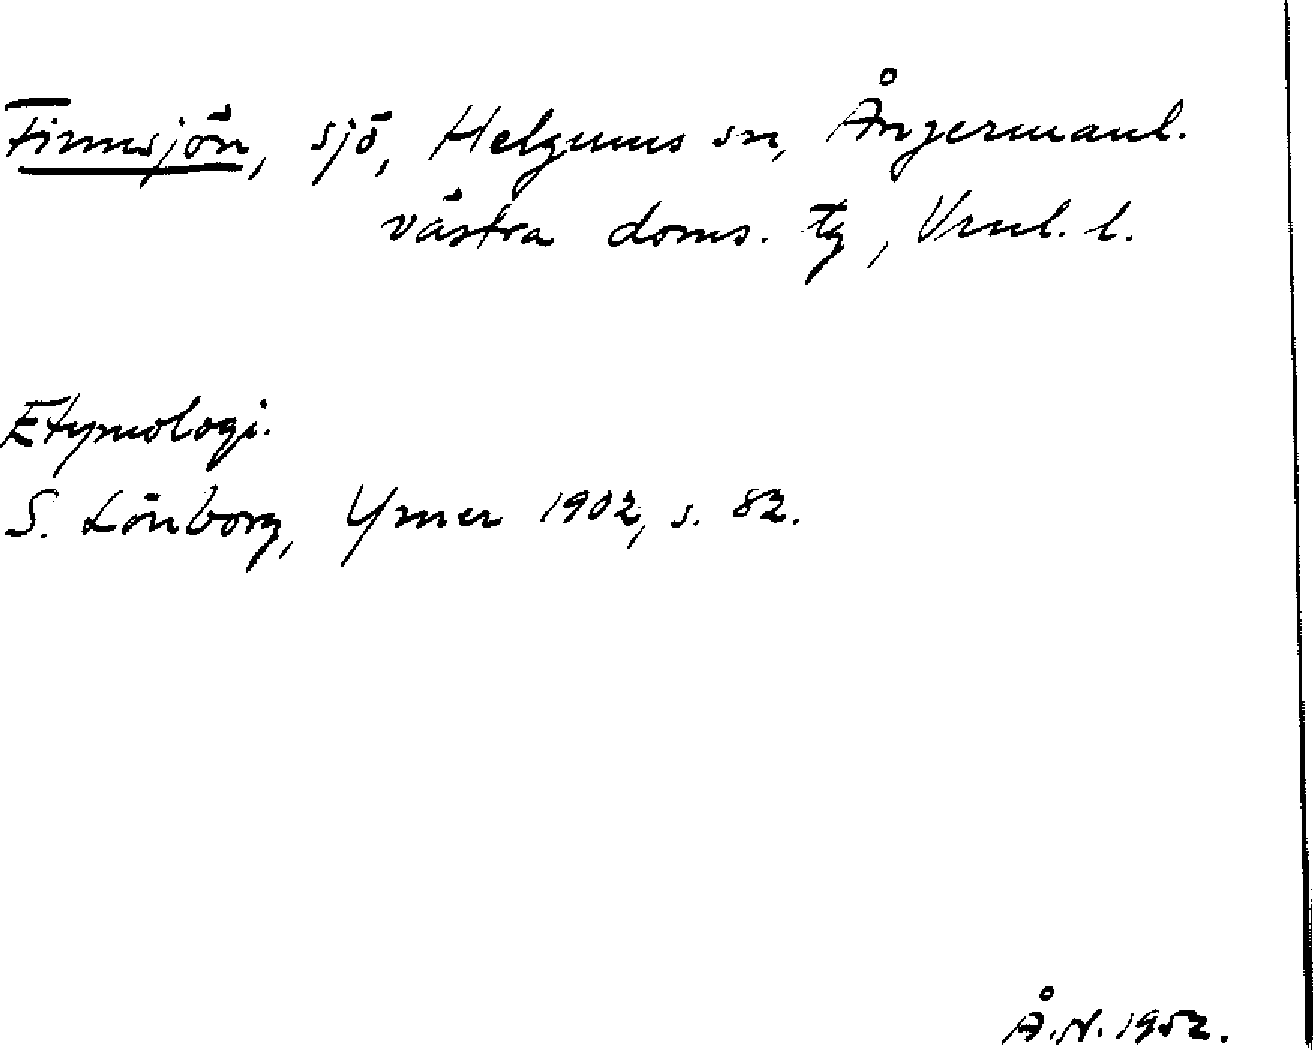 Finnsjön, sjö, Helgums sn, Ångermanl.
västra doms. tg, Vrnl. l.
Etymologi.
S. Lönborg, Ymer 1902, s. 82.
Å.N. 1952.